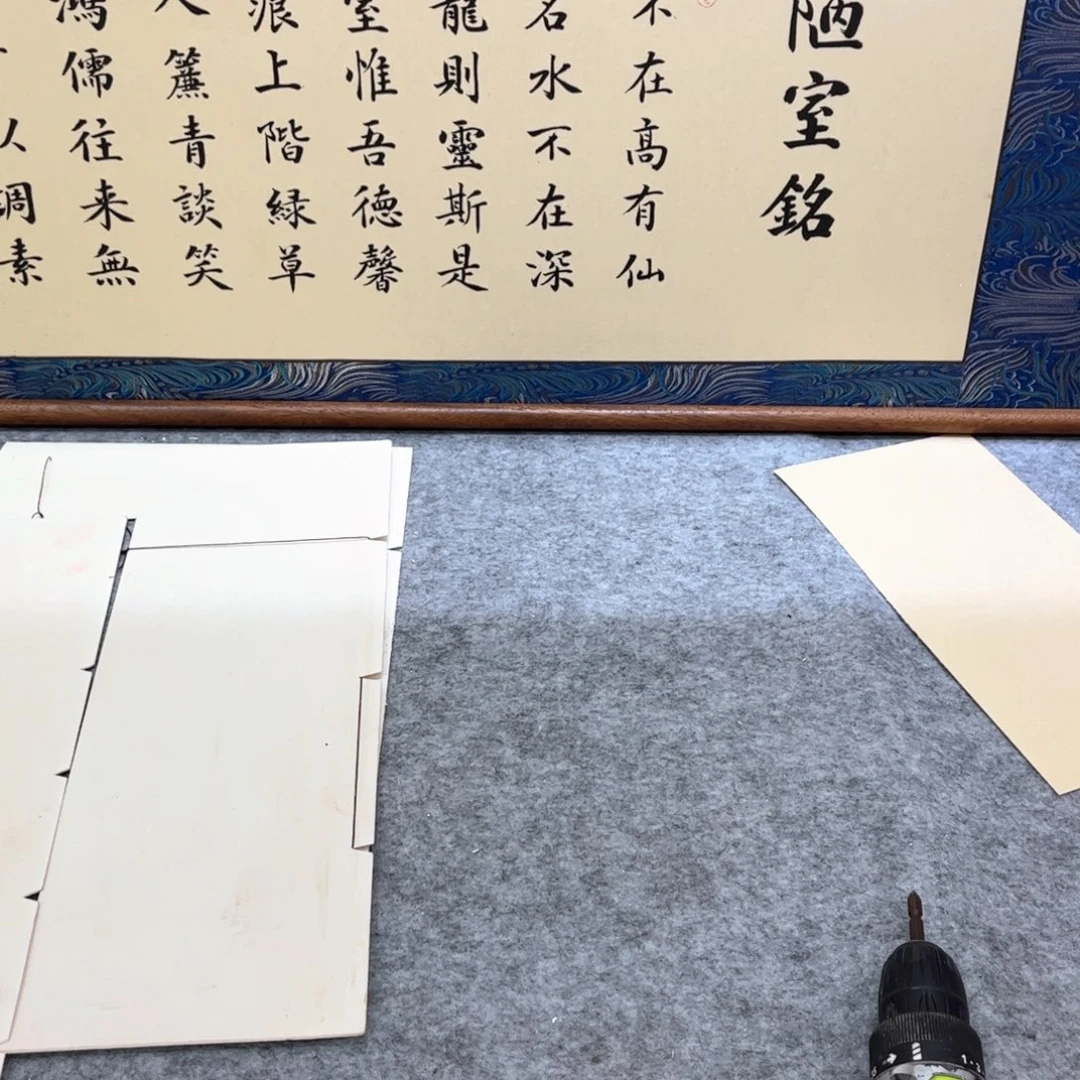 陋室銘
不在高有仙
名水不在深
龍則靈斯是
室惟吾德馨
痕上階緑草
入簾青談笑
鴻儒往来無
以調素